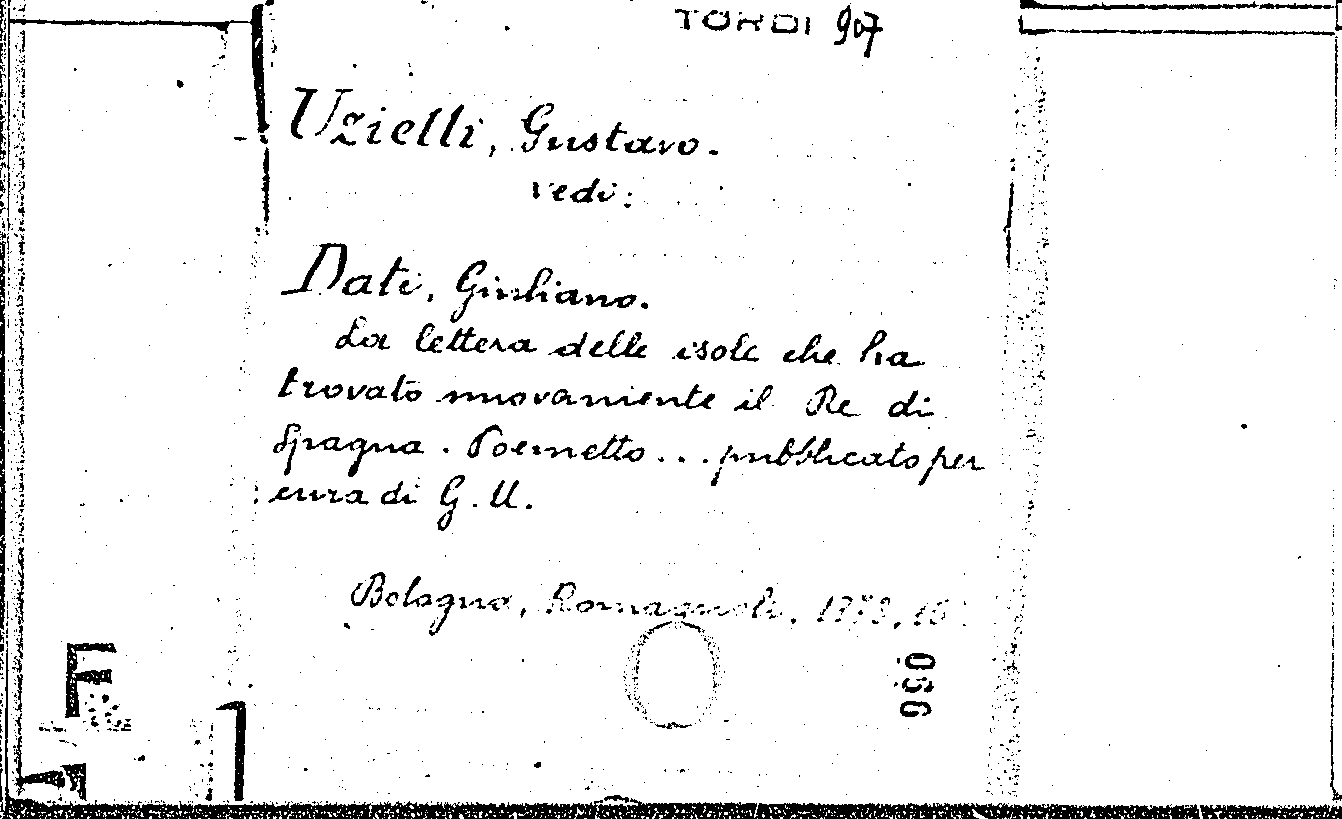 TORDI 907
Uzielli, Gustavo.
vedi:
Dati, Giuliano.
La lettera delle isole che ha
trovato nuovamente il Re di
Spagna. Poemetto... pubblicato per
cura di G. U.
Bologna, Romagnoli, 1873, 16°.
990